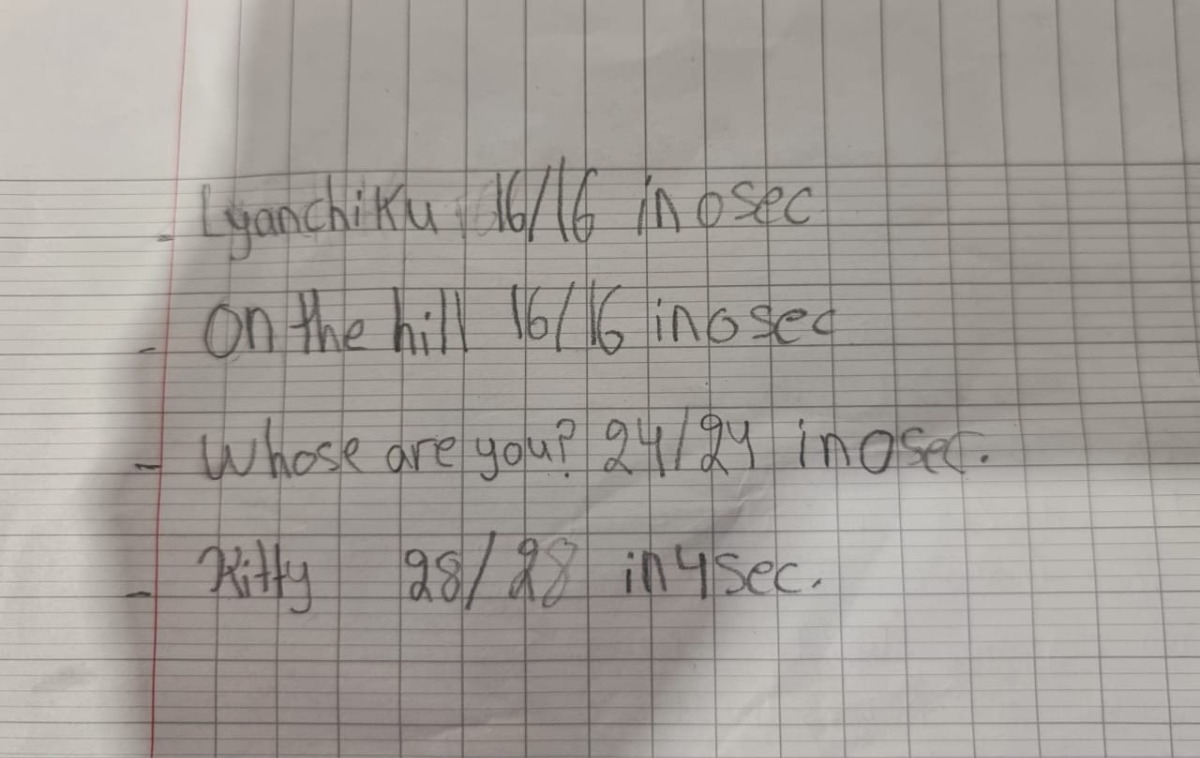 - Lyanchiku 16/16 in 0 sec
- On the hill 16/16 in 0 sec
- Whose are you? 24/24 in 0 sec.
- Kitty 28/28 in 4 sec.